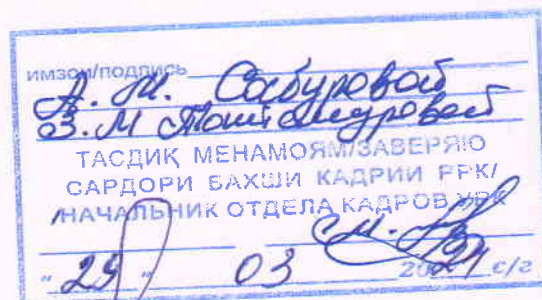 имзои/подпись
А. М. Сабуровой
З. М
ТАСДИҚ МЕНАМОЯМ/ЗАВЕРЯЮ
САРДОРИ БАХШИ КАДРИИ РРК/
НАЧАЛЬНИК ОТДЕЛА КАДРОВ УРК
"29" 03 2024 с/г